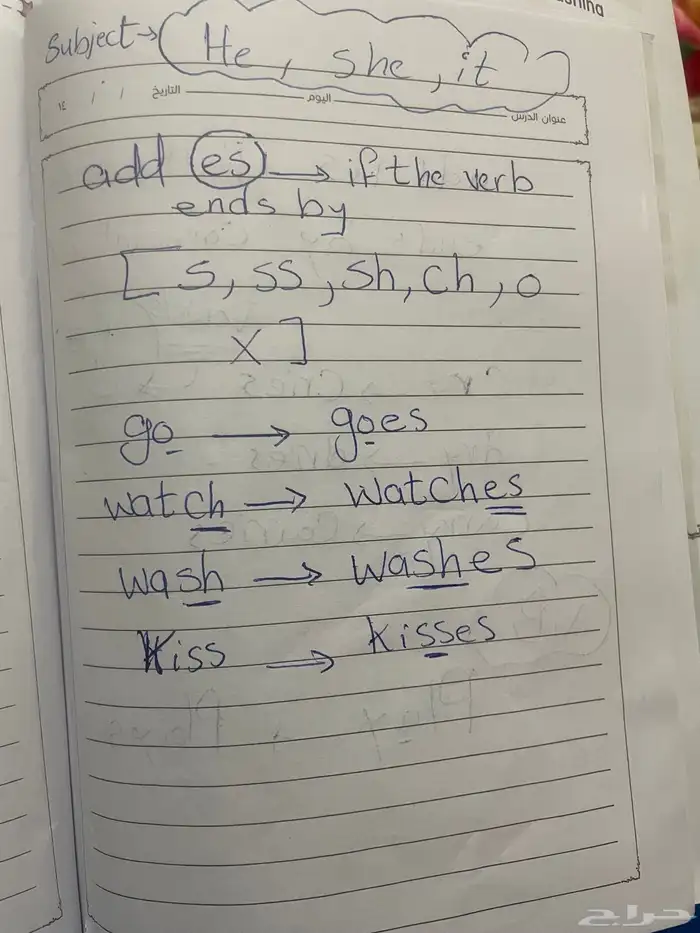 Subject → ( He , she , it )
عنوان الدرس اليوم التاريخ / / ١٤
add (es) → if the verb
ends by
[ s, ss, sh, ch, o
x ]
go → goes
watch → watches
wash → washes
Kiss → kisses
Play → Plays
حراج